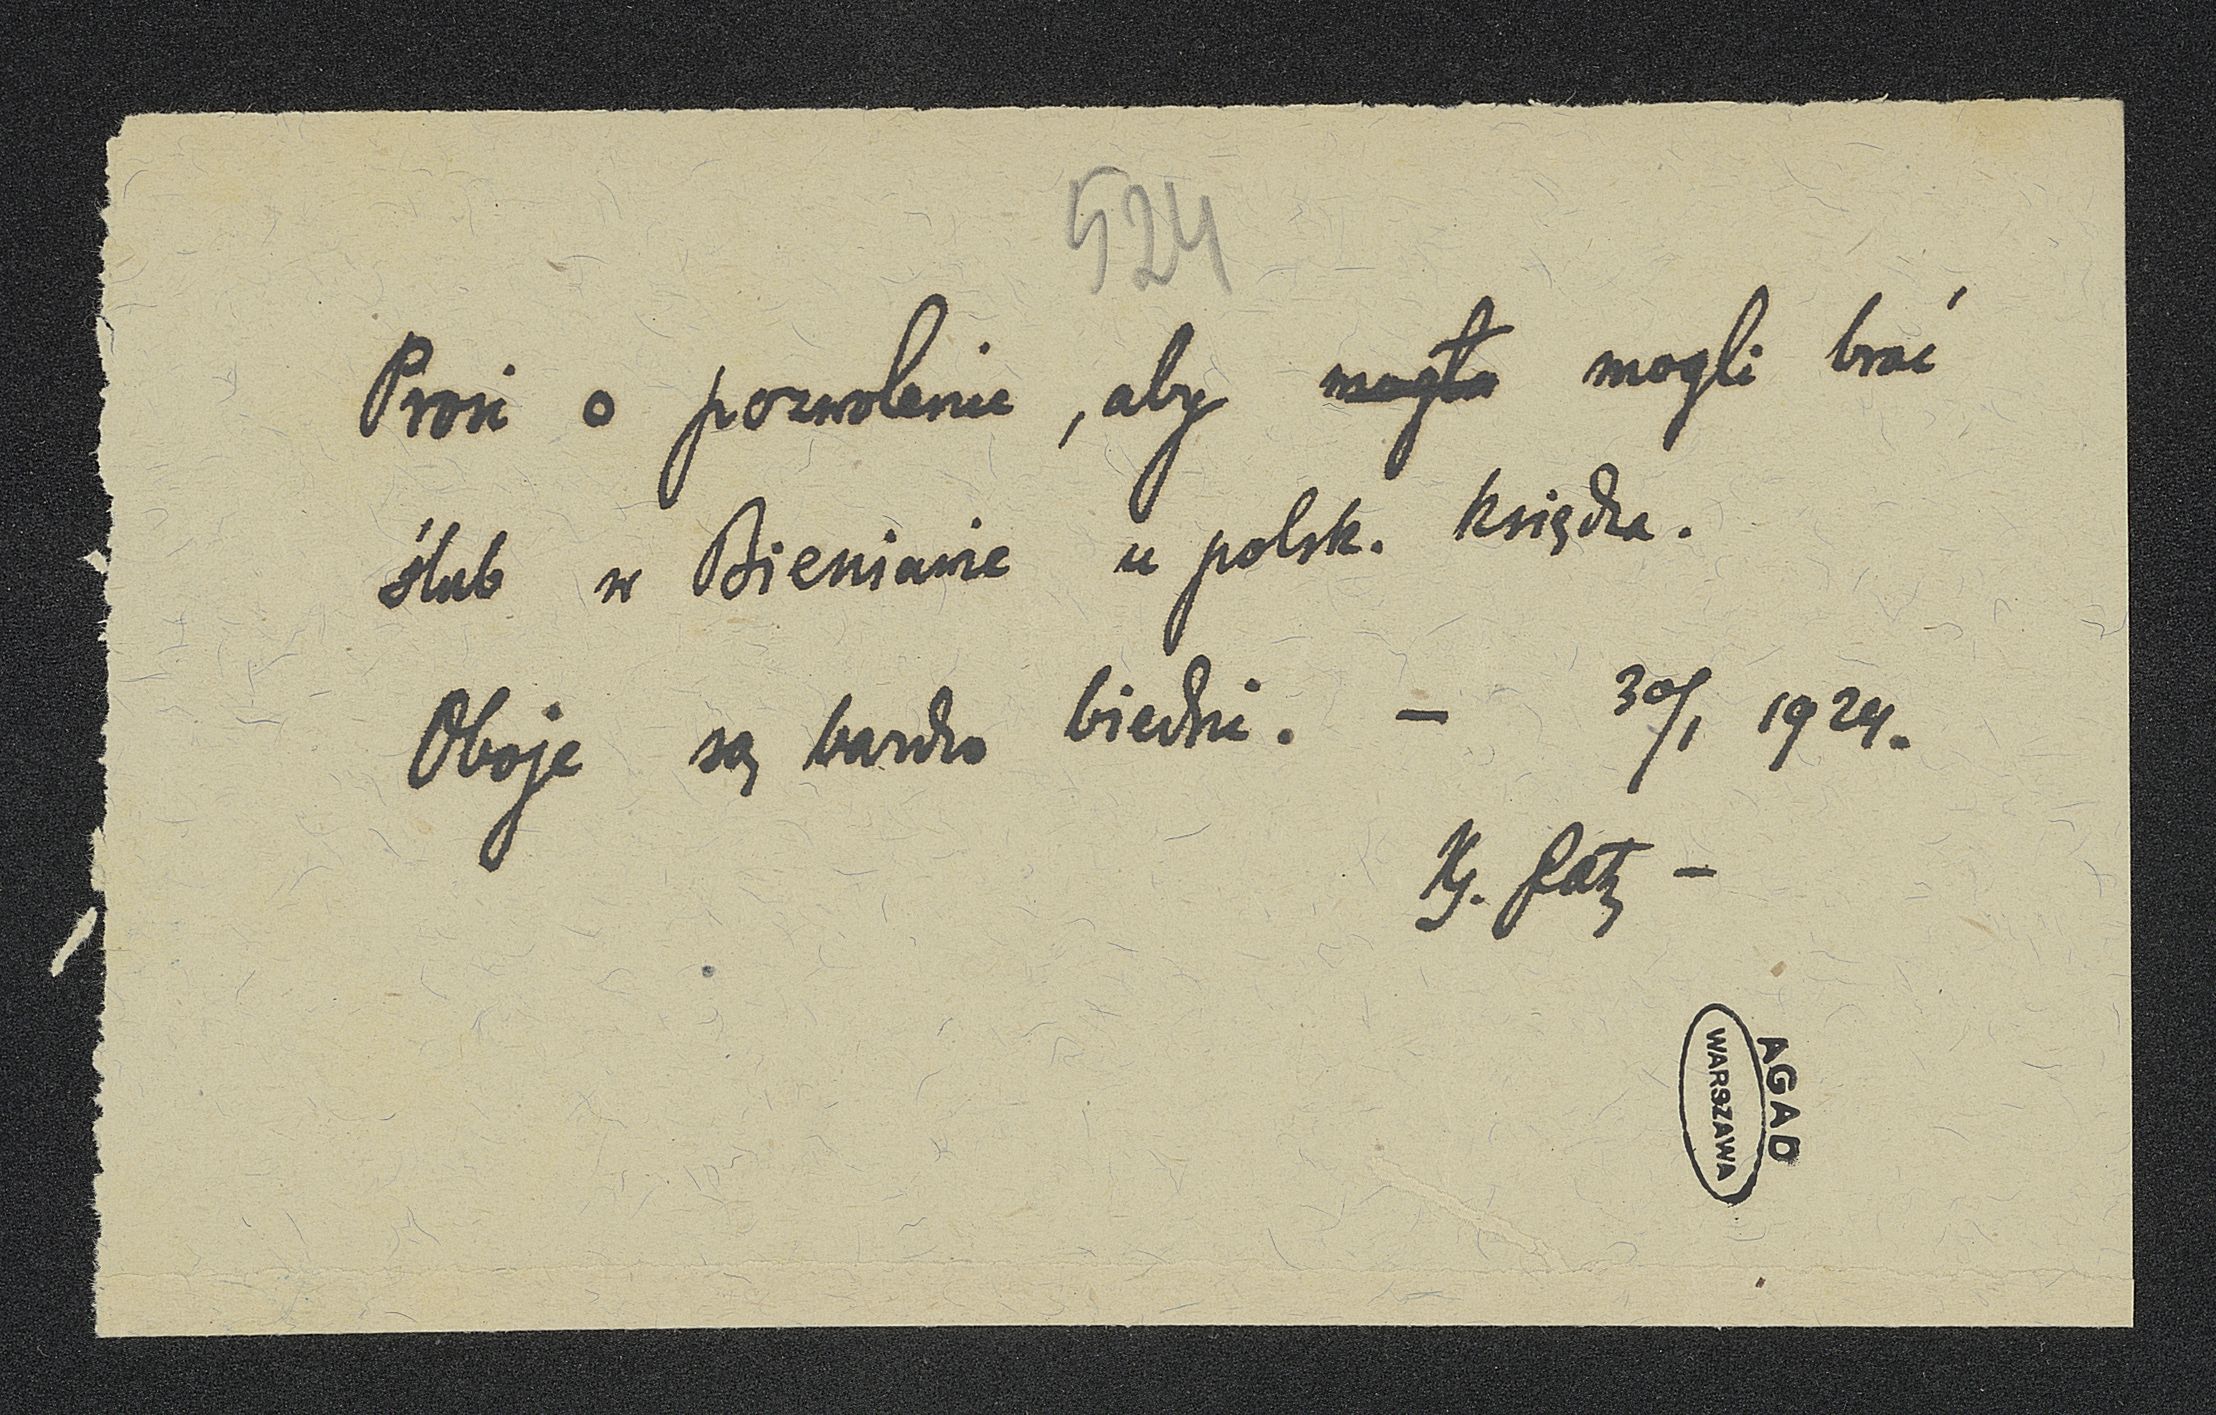 524
Prosi o pozwolenie, aby mogła mogli brać
ślub w Bieniawie u polsk. księdza.
Oboje są bardzo biedni. — 30/1 1924.
AGAD
WARSZAWA